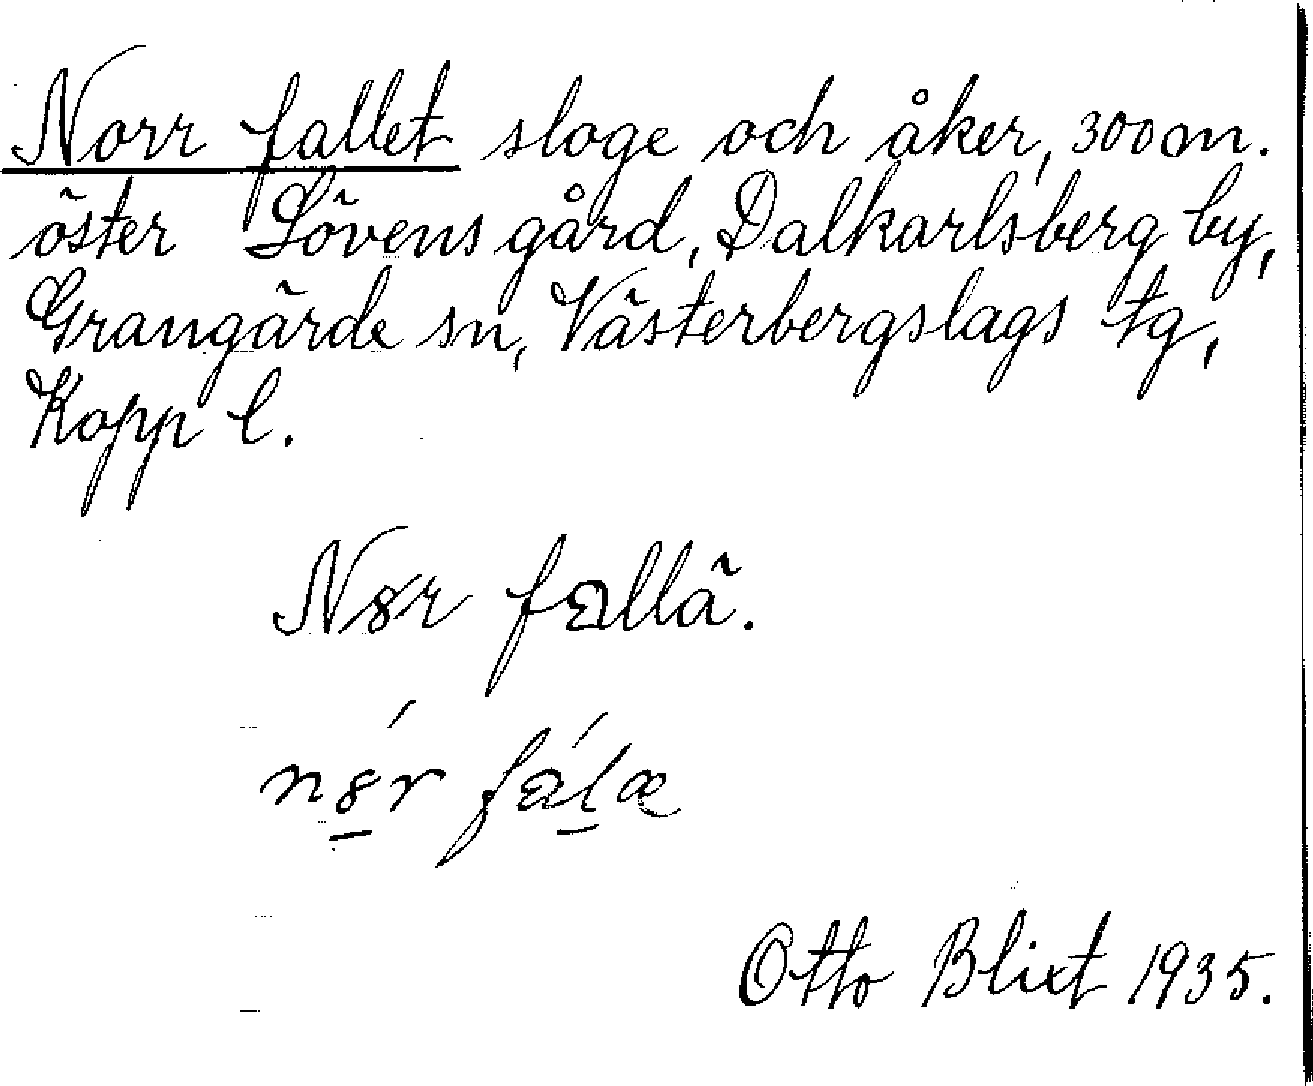 Norr fallet sloge och åker, 300 m.
öster Lövens gård, Dalkarlsberg by,
Grangärde sn, Västerbergslags tg,
Kopp l.
N8r fallä.
n8́r fálæ
Otto Blixt 1935.